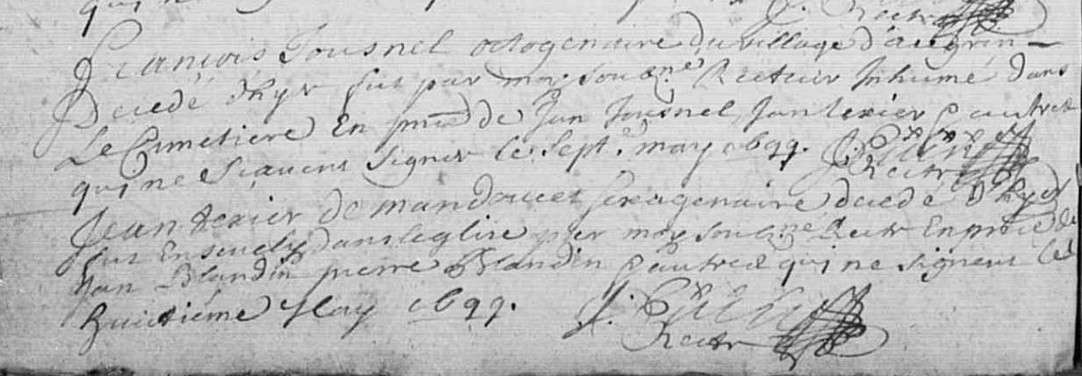 qui ne
Rectr
François Tousnel octogenaire du village d'augrin
Decedé d'hyr fut par moy sousne Recteur Inhumé dans
Le Cimetiere En pnce de Jan Tousnel, Jan texier & autres
qui ne sçavent signer le sept.e may 1699.
Rectr
Jean texier de mandoucet sexagenaire decedé D'hyer
fut Ensevely dans leglise par moy sousne Rectr En pnce de
Jan Blandin pierre Blandin & autres qui ne signent le
huictieme May 1699.
Rectr